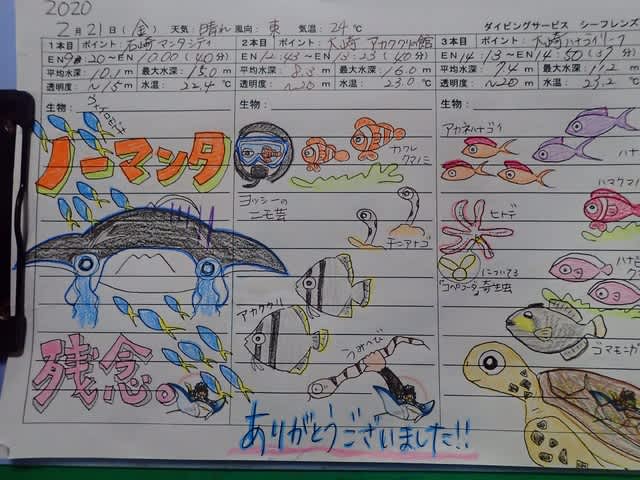 2020
2月21日(金) 天気:晴れ 風向:東 気温:24℃ ダイビングサービス シーフレンズ
1本目 ポイント:石崎マンタシティ
EN 9:20~EN 10:00(40分)
平均水深:10.1m 最大水深:15.0m
透明度:~15m 水温:22.4℃
生物:
ノーマンタ
残念。
2本目 ポイント:大崎 アカククリの館
EN 12:43~EN 13:23(40分)
平均水深:8.3m 最大水深:16.0m
透明度:~20m 水温:23.0℃
生物:
カクレ
クマノミ
ヨッシーの
ニモ芸
チンアナゴ
アカククリ
うみへび
ありがとうございました!!
3本目 ポイント:大崎ハナゴイリーフ
EN 14:13~EN 14:50(37分)
平均水深:7.4m
透明度:~20m 水温:23.2
生物:
アカネハナゴイ
ハナ
ハマクマ
ヒトデ
についてる
コペポーダ 寄生虫
ゴマモンガ